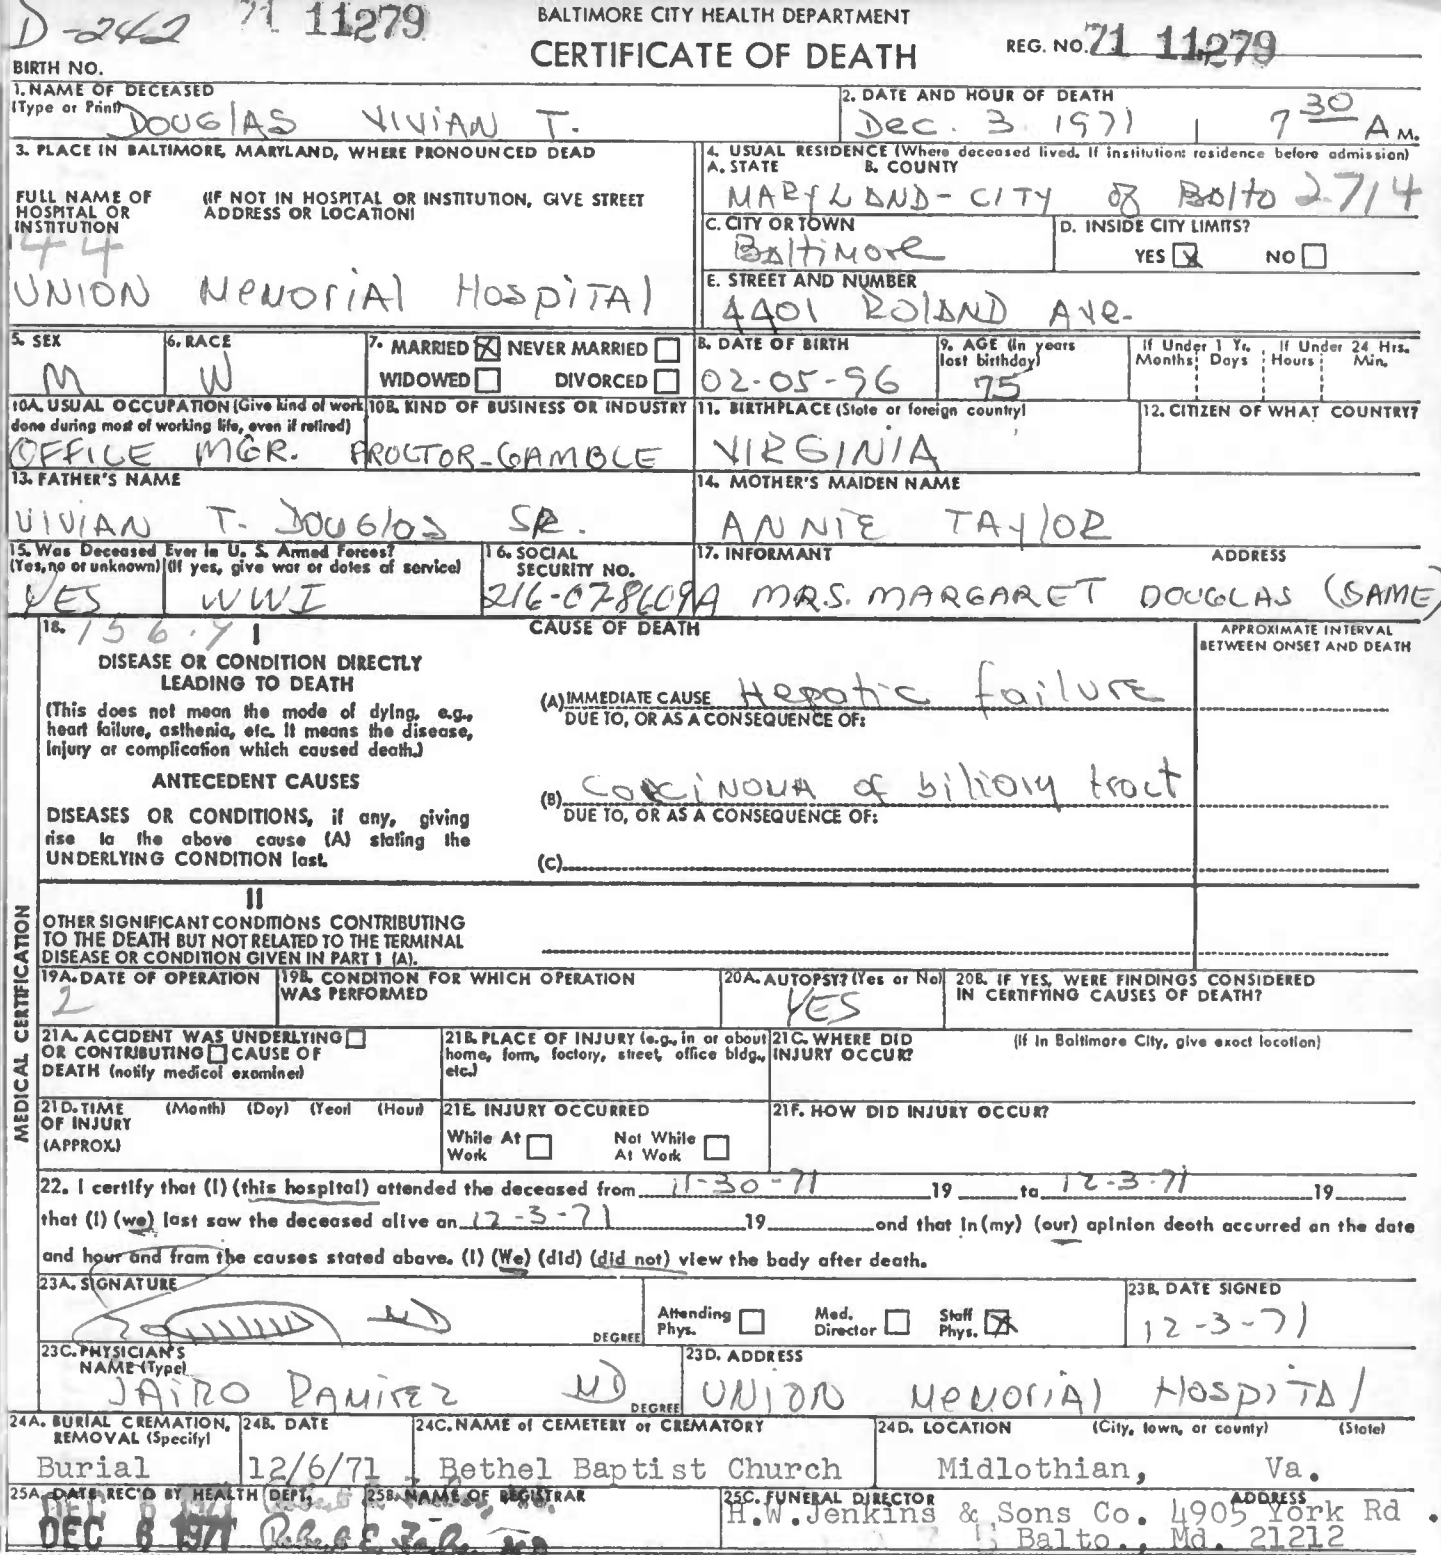 D-242 71 11279
BALTIMORE CITY HEALTH DEPARTMENT
CERTIFICATE OF DEATH
REG. NO. 71 11279
BIRTH NO.
1. NAME OF DECEASED
(Type or Print)
DOUGLAS VIVIAN T.
2. DATE AND HOUR OF DEATH
Dec. 3 1971 7 30 A M.
3. PLACE IN BALTIMORE, MARYLAND, WHERE PRONOUNCED DEAD
FULL NAME OF HOSPITAL OR INSTITUTION
(IF NOT IN HOSPITAL OR INSTITUTION, GIVE STREET ADDRESS OR LOCATION)
44
UNION MEMORIAL HOSPITAL
4. USUAL RESIDENCE (Where deceased lived. If institution: residence before admission)
A. STATE B. COUNTY
MARYLAND - CITY of Balto 2714
C. CITY OR TOWN
Baltimore
D. INSIDE CITY LIMITS?
YES NO
E. STREET AND NUMBER
4401 ROLAND AVE.
5. SEX
M
6. RACE
W
7. MARRIED NEVER MARRIED
WIDOWED DIVORCED
8. DATE OF BIRTH
02-05-96
9. AGE (In years last birthday)
75
If Under 1 Yr. Months Days
If Under 24 Hrs. Hours Min.
10A. USUAL OCCUPATION (Give kind of work done during most of working life, even if retired)
OFFICE MGR.
10B. KIND OF BUSINESS OR INDUSTRY
PROCTOR-GAMBLE
11. BIRTHPLACE (State or foreign country)
VIRGINIA
12. CITIZEN OF WHAT COUNTRY?
13. FATHER'S NAME
VIVIAN T. DOUGLAS SR.
14. MOTHER'S MAIDEN NAME
ANNIE TAYLOR
15. Was Deceased Ever in U. S. Armed Forces?
(Yes, no or unknown) (If yes, give war or dates of service)
YES WWI
16. SOCIAL SECURITY NO.
216-078609A
17. INFORMANT ADDRESS
MRS. MARGARET DOUGLAS (SAME)
18. 156.9 I
DISEASE OR CONDITION DIRECTLY LEADING TO DEATH
(This does not mean the mode of dying, e.g., heart failure, asthenia, etc. It means the disease, injury or complication which caused death.)
ANTECEDENT CAUSES
DISEASES OR CONDITIONS, if any, giving rise to the above cause (A) stating the UNDERLYING CONDITION last.
CAUSE OF DEATH
APPROXIMATE INTERVAL BETWEEN ONSET AND DEATH
(A) IMMEDIATE CAUSE Hepatic failure
DUE TO, OR AS A CONSEQUENCE OF:
(B) Carcinoma of biliary tract
DUE TO, OR AS A CONSEQUENCE OF:
(C)
II
OTHER SIGNIFICANT CONDITIONS CONTRIBUTING TO THE DEATH BUT NOT RELATED TO THE TERMINAL DISEASE OR CONDITION GIVEN IN PART 1 (A).
MEDICAL CERTIFICATION
19A. DATE OF OPERATION
2
19B. CONDITION FOR WHICH OPERATION WAS PERFORMED
20A. AUTOPSY? (Yes or No)
YES
20B. IF YES, WERE FINDINGS CONSIDERED IN CERTIFYING CAUSES OF DEATH?
21A. ACCIDENT WAS UNDERLYING OR CONTRIBUTING CAUSE OF DEATH (notify medical examiner)
21B. PLACE OF INJURY (e.g., in or about home, farm, factory, street, office bldg., etc.)
21C. WHERE DID INJURY OCCUR?
(If in Baltimore City, give exact location)
21D. TIME OF INJURY (APPROX.) (Month) (Day) (Year) (Hour)
21E. INJURY OCCURRED
While At Work Not While At Work
21F. HOW DID INJURY OCCUR?
22. I certify that (I) (this hospital) attended the deceased from 11-30-71 19 to 12-3-71 19
that (I) (we) last saw the deceased alive on 12-3-71 19 and that in (my) (our) opinion death occurred on the date
and hour and from the causes stated above. (I) (We) (did) (did not) view the body after death.
23A. SIGNATURE
MD
DEGREE
Attending Phys. Med. Director Staff Phys.
23B. DATE SIGNED
12-3-71
23C. PHYSICIAN'S NAME (Type)
JAIRO RAMIREZ MD
DEGREE
23D. ADDRESS
UNION MEMORIAL HOSPITAL
24A. BURIAL CREMATION, REMOVAL (Specify)
Burial
24B. DATE
12/6/71
24C. NAME of CEMETERY or CREMATORY
Bethel Baptist Church
24D. LOCATION (City, town, or county) (State)
Midlothian, Va.
25A. DATE REC'D BY HEALTH DEPT.
DEC 6 1971
25B. NAME OF REGISTRAR
25C. FUNERAL DIRECTOR ADDRESS
H.W.Jenkins & Sons Co. 4905 York Rd.
Balto., Md. 21212